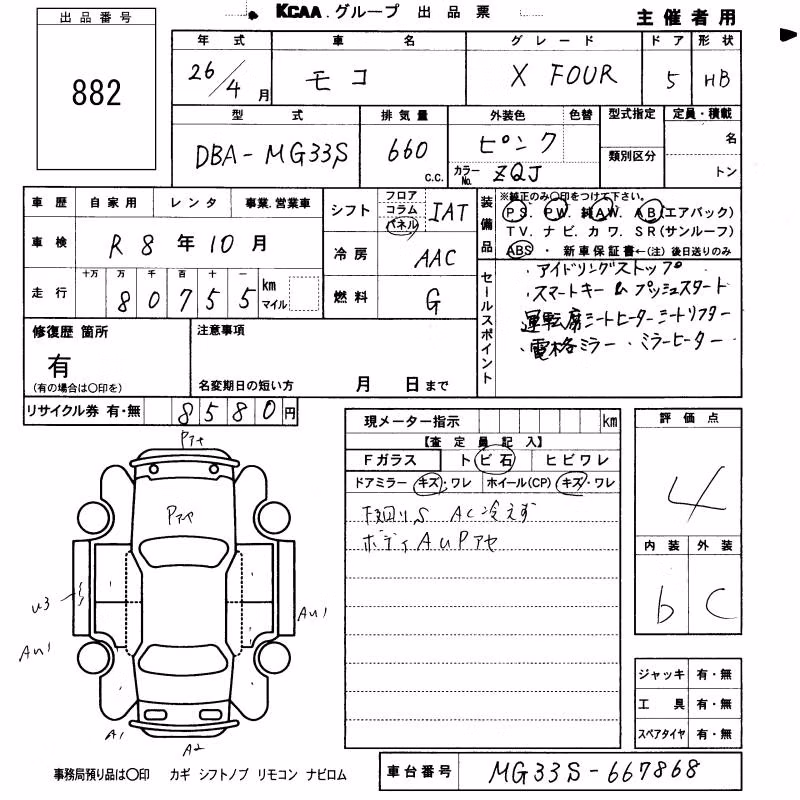 KCAA.グループ 出品票
主催者用
出品番号
882
年式 車名 グレード ドア 形状
26/4月 モコ X FOUR 5 HB
型式 排気量 外装色 色替 型式指定 定員・積載
DBA-MG33S 660 c.c. ピンク 名
カラーNo. ZQJ 類別区分 トン
車歴 自家用 レンタ 事業.営業車
車検 R8年10月
走行 十万 万 千 百 十 一
80755 km マイル
シフト フロア コラム パネル IAT
冷房 AAC
燃料 G
装備品
※純正のみ〇印をつけて下さい。
PS. PW. 純AW. AB(エアバック)
TV. ナビ. カワ. SR(サンルーフ)
ABS ・ 新車保証書←(注) 後日送りのみ
セールスポイント
・アイドリングストップ
・スマートキー & プッシュスタート
運転席シートヒーター シートリフター
・電格ミラー ・ミラーヒーター
修復歴 箇所
有
(有の場合は〇印を)
注意事項
名変期日の短い方 月 日まで
リサイクル券 有・無 8580円
現メーター指示 km
【査定員記入】
Fガラス トビ石 ヒビワレ
ドアミラー キズ・ワレ ホイール(CP) キズ・ワレ
下回りS AC冷えず
ボディAUPアセ
評価点
4
内装 外装
b C
Pアセ
Pアセ
U3
AU1
AU1
A1
A2
ジャッキ 有・無
工具 有・無
スペアタイヤ 有・無
事務局預り品は〇印 カギ シフトノブ リモコン ナビロム
車台番号 MG33S-667868